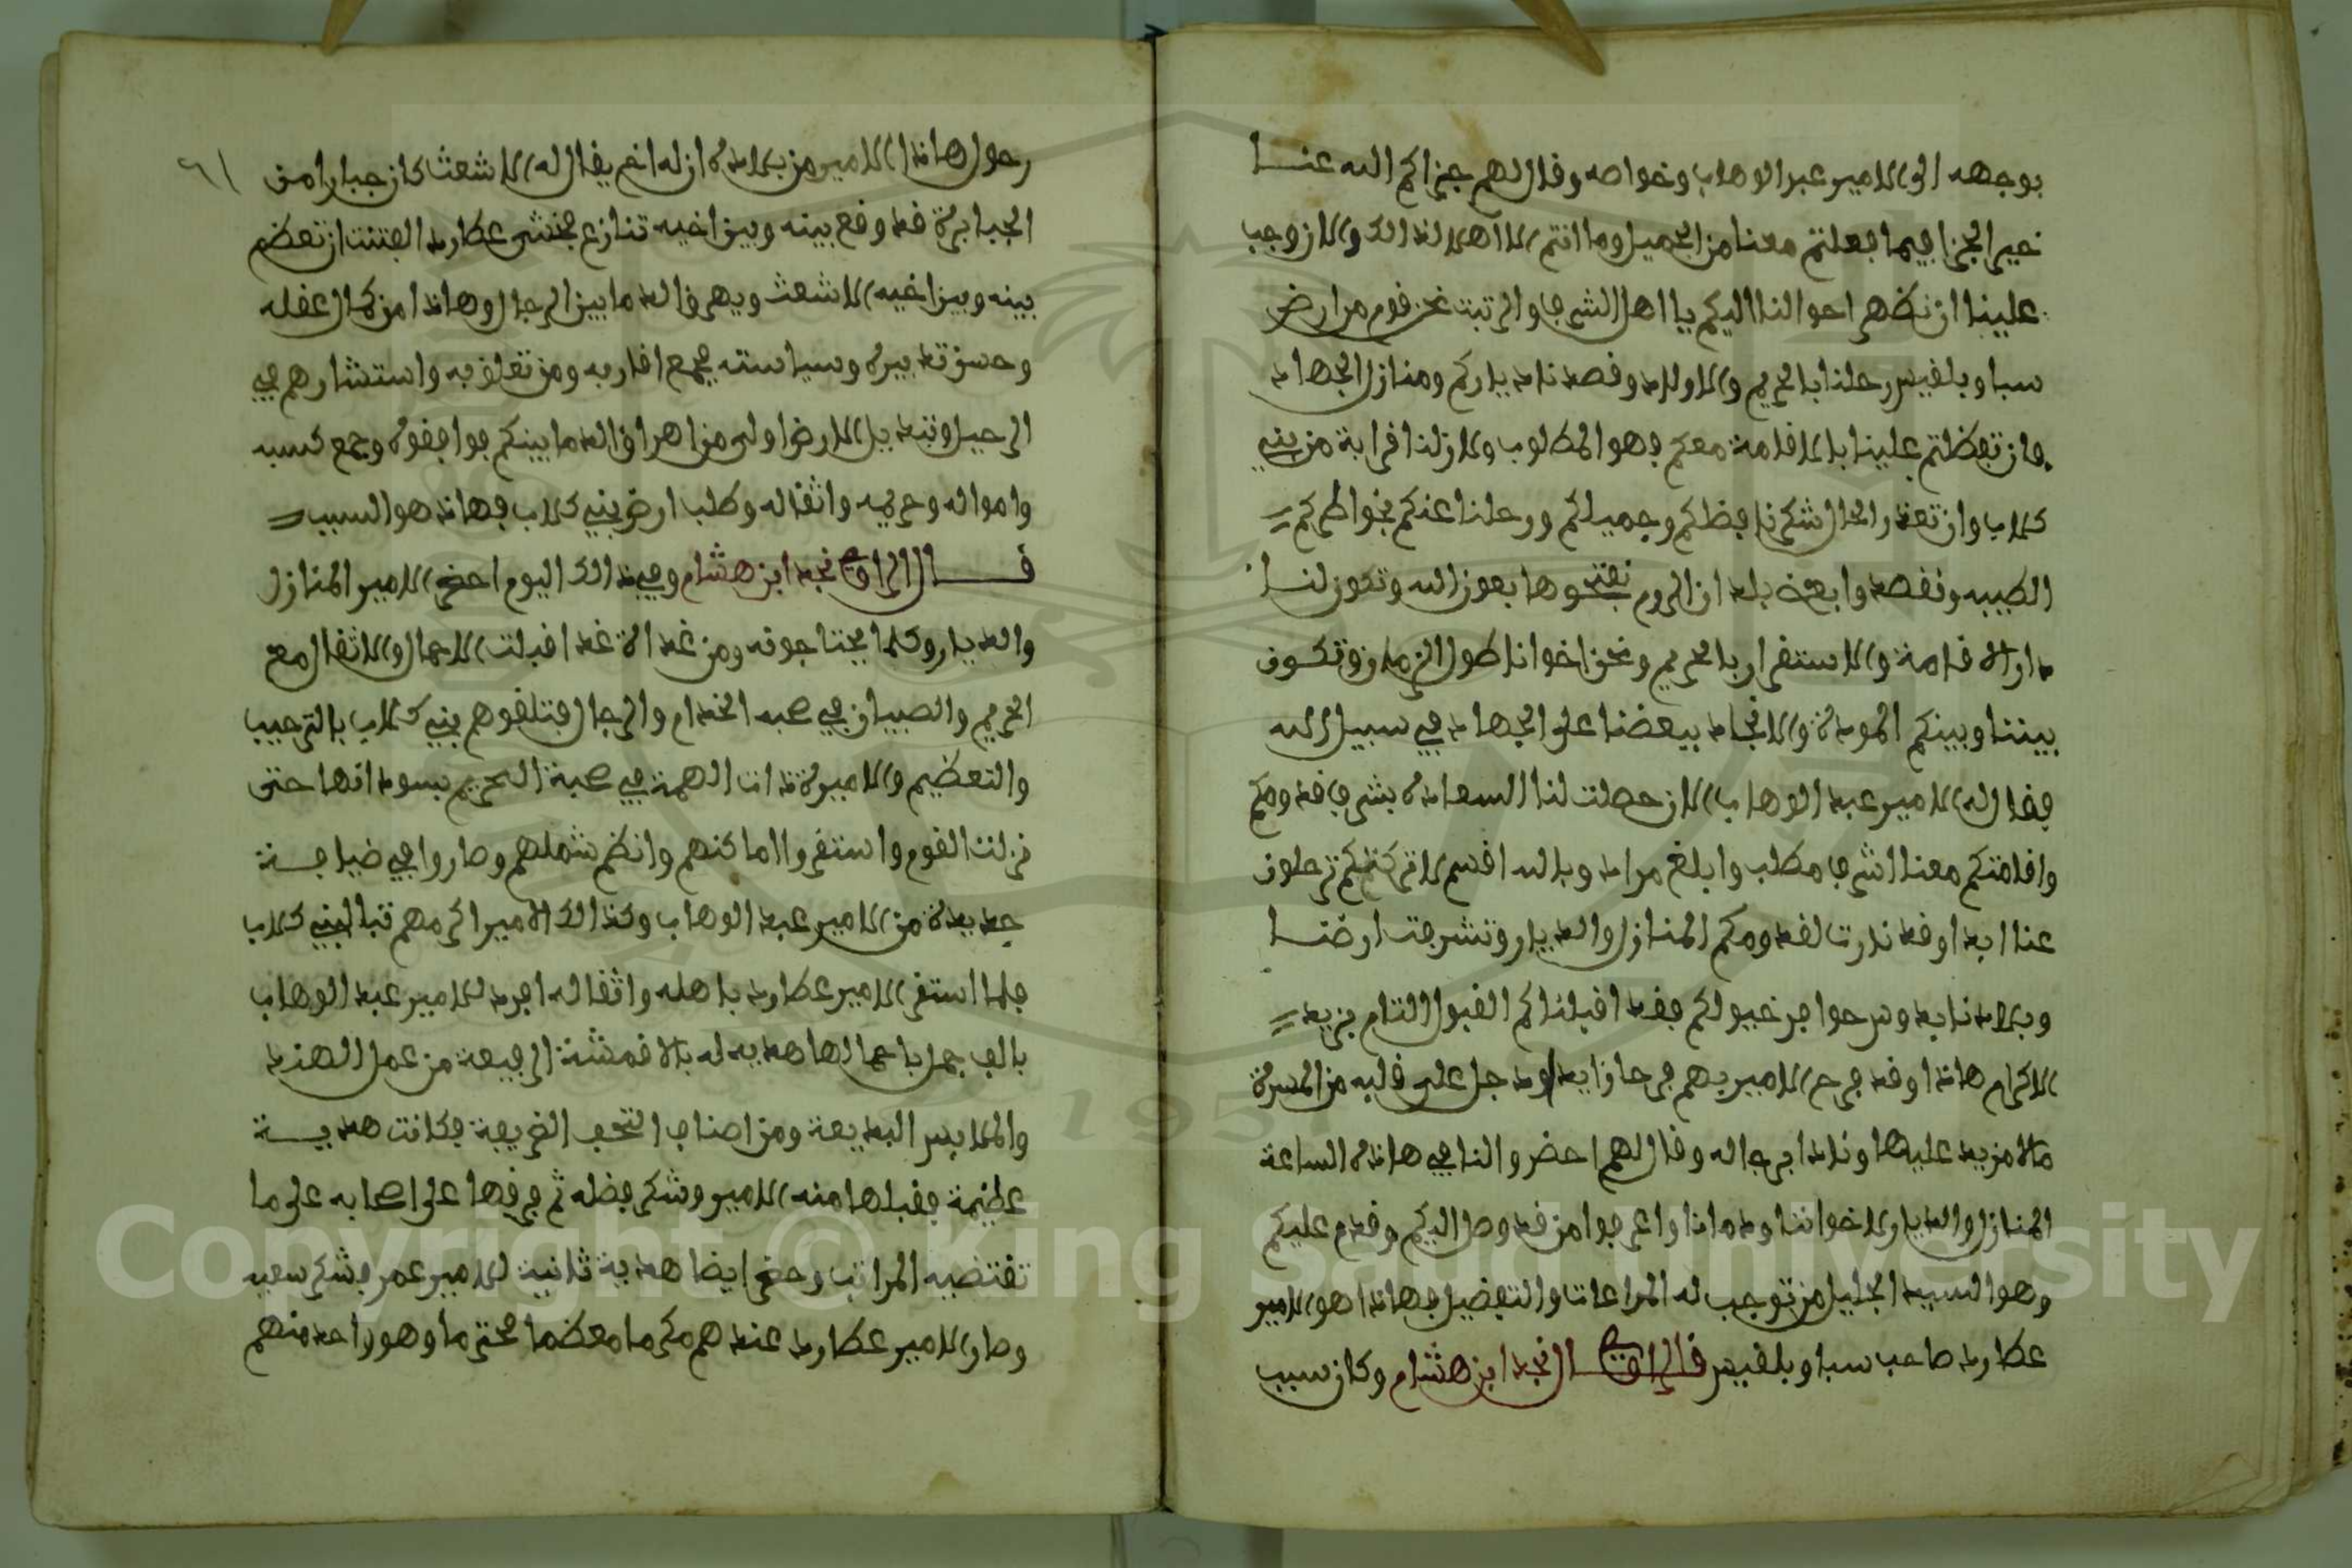 بوجهه الى الامير عبد الوهاب وخواصه وقال لهم جزاكم الله عنا
خير الجزا فيما فعلتم معنا من الجميل وما انتم الا اهلا لذالك والان وجب
علينا ان نظهر احوالنا اليكم يا اهل الشرف والرتبت نحن قوم من ارض
سبا وبلقيس رحلنا بالحريم والاولاد وقصدنا دياركم ومنازل الجهاد
فان تفظلتم علينا بالاقامة معكم فهو المطلوب ولان لنا قرابة من بني
كلاب وان تعذر الحال شكرنا فظلكم وجميلكم ورحلنا عنكم بخواطركم
الطيبه ونقصدوا بعض بلدان الروم نفتحوها بعون الله وتكون لنا
دار الاقامة والاستقرار بالحريم ونحن اخوانا طول الزمان وتكون
بيننا وبينكم المودة والانجاد ببعضنا على الجهاد في سبيل الله
فقال له الامير عبد الوهاب الان حصلت لنا السعادة بشرف قدومكم
واقامتكم معنا اشرف مطلب وابلغ مراد وبالله اقسم لا تركتكم ترحلون
عنا ابدا وقد نادرت لقدومكم المنازل والديار وتشرفت ارضنا
وبلادنا بدوسر حوافر خيولكم فقد اقبلناكم القبول التام بزيد
الاكرام هاذا وقد فرح الامير بهم فرحا زايدا ودخل على قلبه من المسرة
مالا مزيد عليها ونادا برجاله وقال لهم احضروا لنا في هاذه الساعة
المنازل والديار لاخواننا وندمانا واعرفوا من قد وصل اليكم وقدم عليكم
وهو السيد الجليل من توجب له المراعات والتفضيل فهاذا هو الامير
عطارد صاحب سبا وبلقيس قال الراوي نجد ابن هشام وكان سبب
٦١
رحول هاذا الامير من بلاده ان له اخ يقال له الاشعث كان جبارا من
الجبابرة قد وقع بينه وبين اخيه تنازع فخشى عطارد الفتنت ان تعظم
بينه وبين اخيه الاشعث ويهرق الدما بين الرجال وهاذا من كمال عقله
وحسن تدبيره وسياسته فجمع اقاربه ومن تعلق به واستشارهم في
الرحيل وتبديل الارض اولى من اهراق الدما بينكم فوافقوه وجمع كسبه
وامواله وحريمه واثقاله وطلب ارض بني كلاب فهاذ هو السبب
قال الراوي نجد ابن هشام وفي ذالك اليوم احضر الامير المنازل
والديار وكلما يحتاجونه ومن غد الاغد اقبلت الاجمال والاثقال مع
الحريم والصبيان في صحبه الخدام والرجال فتلقوهم بني كلاب بالترحيب
والتعظيم والاميرة ذات الهمة في صحبة الحريم بسودانها حتى
نزلت القوم واستقروا اماكنهم وانظم شملهم وصاروا في ضيافة
جديدة من الامير عبد الوهاب وكذالك الامير اكرمهم بني كلاب
فلما استقر الامير عطارد باهله واثقاله افرد للامير عبد الوهاب
بالف جمل باحمالها هديه له بالاقمشة الرفيعة من عمل الهند
والملابس البديعة ومن اصناف التحف الغريبة فكانت هدية
عظيمة فقبلها منه الامير وشكر فضله ثم فرقها على اصحابه على ما
تقتضيه المراتب وحضر ايضا هدية ثانية للامير عمر وشكر سعيه
وصار الامير عطارد عندهم مكرما معظما محترما وهو واحد منهم
Copyright © King Saud University
1957